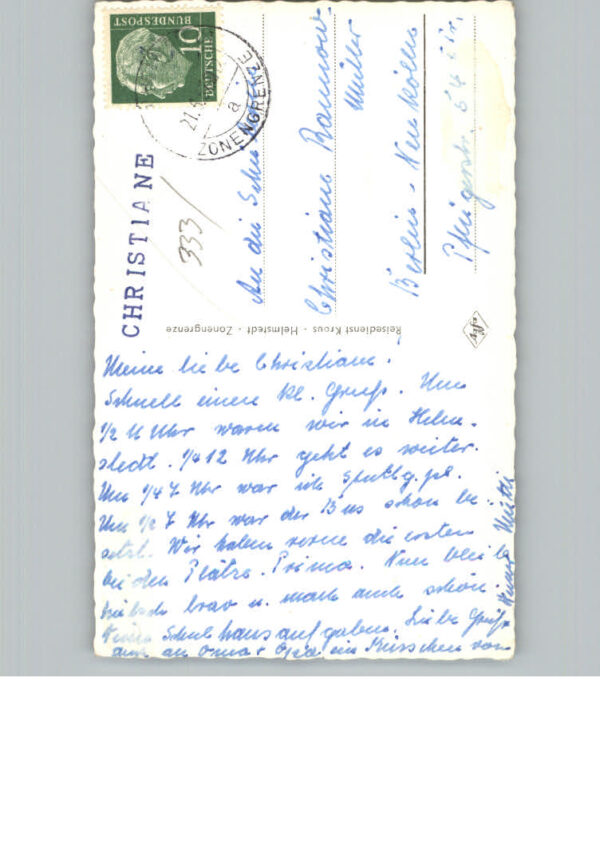 10
DEUTSCHE
BUNDESPOST
21.6.
ZONENGRENZE
a
CHRISTIANE
333/
An die
Christiane
Müller
Berlin-Neukölln
Pflügerstr. 64
Reisedienst Kraus - Helmstedt - Zonengrenze
Agfa
Meine liebe Christiane!
Schnell einen kl. Gruß. Um
1/2 11 Uhr waren wir in Helm-
stedt. 1/4 12 Uhr geht es weiter.
Um 1/4 7 Uhr war ich
Um 1/2 7 Uhr war der Bus schon be-
setzt. Wir haben vorne die ersten
beiden Plätze. Prima. Nun bleib
brav u. mach auch schön
Schulhausaufgaben. Liebe Grüße
auch an Oma + Opa. ein Küsschen von
Mutti